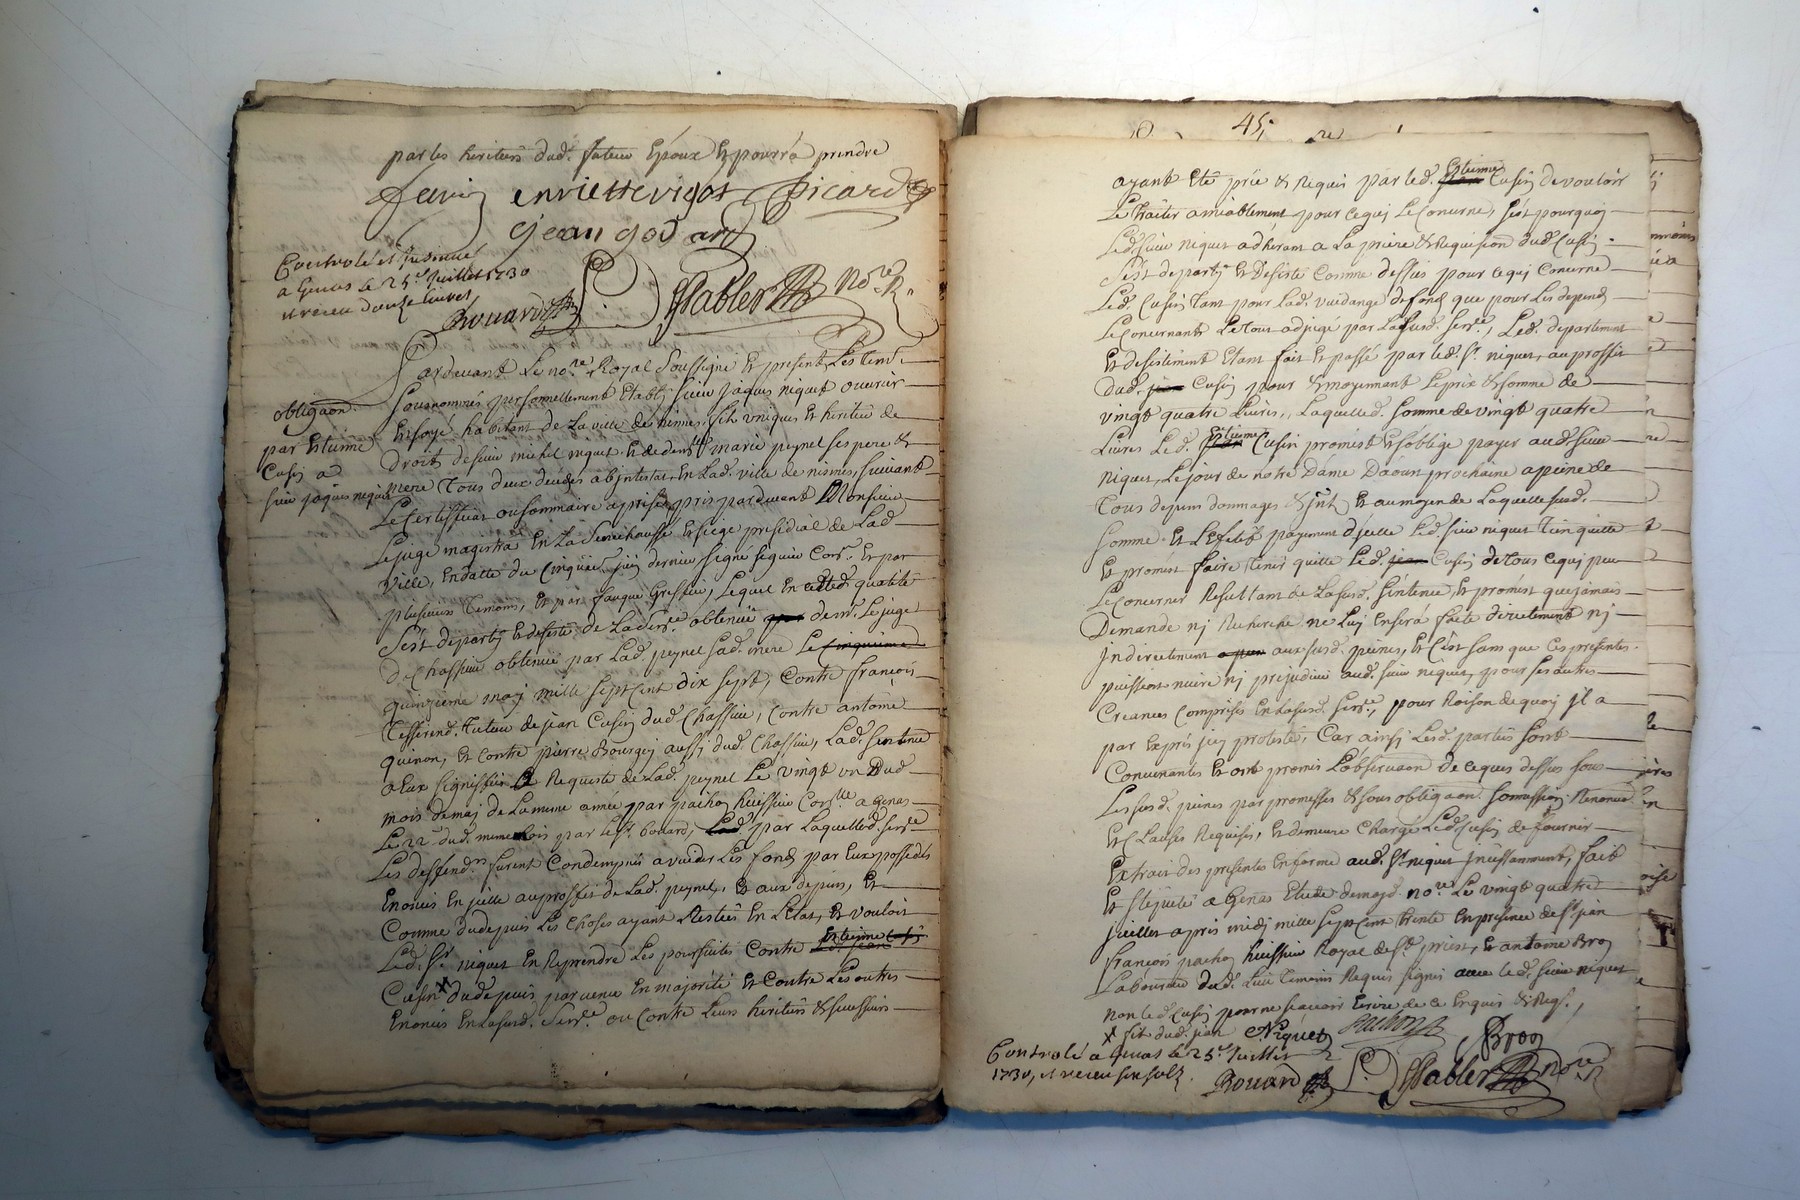 par les heritiers dud. futeur Epoux Et pourra prendre
enriette vigot Picard
jean godard
Controlé et Insinué
a Genas le 25e Juillet 1730
et receu douze livres
Rouard
Sablier Nore R.
Pardevant Le nore Royal Soussigné Et presents Les tem.
Sousnommés personnellement Etably sieur Jaques niquet ouvrier
obligaon.
par Etienne
Cusin a
sieur jaques niquet
En soye habitant de La ville de nismes, fils unique Et heritier de
Droit de sieur michel niquet Et de demlle marie peynel ses pere &
mere Tous deux decedés abintestat En Lad. ville de nismes, suivant
Le Certifficat ou sommaire apprise pris pardevant Monsieur
Le juge magistra En La Senechaussé Et siege presidial de Lad.
ville, En datte du cinquie. juin dernier signé seguin Cors. Et par
plusieurs Temoins, Et par fauque Greffier, Lequel En cette qualité
s'est departy Et desisté de La Sence obtenue de mr. Le juge
de Chassieu obtenue par Lad. peynel sad. mere Le cinquieme
quinzieme may mille sept cent dix sept, Contre francois
Tesserind. Tuteur de jean Cusin dud. Chassieu, Contre antoine
quinon, Et contre pierre Bourgey aussi dud. Chassieu, Lad. sentence
a Eux signiffiée a Requeste de Lad. peynel Le vingt un Dud.
mois de may de La meme année par pachon huissier Conlle a genas
Le 22 dud. meme mois par Le Sr. godard, Lad. par Laquelle d. sence
Les deffend.rs furent Condempnés a vuider Les fonds par Eux possedés
Enoncés En jcelle au proffit de Lad. peynel, Et aux depens, Et
Comme du depuis Les choses ayant Restées En L'Etat, Et vouloit
Led. Sr. niquet En Reprendre Les poursuites Contre Led. jean Etienne Cusin
Cusin X du depuis parvenu En majorité Et Contre Les autres
Enoncés En La susd. Sence ou Contre Leurs heritiers & successeurs
45.
ayant Eté prié & Requis par led. jean Etienne Cusin de vouloir
Le traiter amiablement pour ce quj Le Concerne, s'est pourquoy
Led. sieur niquet adherant a La priere & Requisition dud. Cusin
s'est departy Et Desisté Comme dessus pour ce quj Concerne
Led. Cusin Tant pour Lad. vuidange de fonds que pour Les depends
Le Concernants Le Tout adjugé par La susd. sence, Led. departement
Et desistement Etant fait Et passé par led. Sr. niquet, au proffit
Dud. jean Cusin pour & moyennant Le prix & somme de
vingt quatre Livres, Laquelle d. somme de vingt quatre
Livres Led. jean Etienne Cusin promest Et s'oblige payer aud. sieur
niquet, Le jour de notre Dame Daoust prochaine a peine de
Tous depens dommages & jnt. Et au moyen de Laquelle susd.
somme Et L'Effectif payement d'jcelle Led. sieur niquet Tien quitte
Et promest faire Tenir quitte Led. jean Cusin de Tous ce quj peu
Le Concerner Resultant de La susd. sentence, Et promest que jamais
Demande nj Recherche ne Luy En sera faite directement nj
jndirectement aux susd. peines, Et C'est sans que Ces presentes
puissent nuire nj prejudicier aud. sieur niquet, pour ses autres
Creances Comprises En La susd. sence, pour Raison de quoy jl a
par Exprés jcy protesté, Car ainsj Lesd. parties sont
Convenantes Et ont promis L'observaon. de ce que dessus sous
Les susd. peines par promesses & sous obligaon. somission Renonc.
Et Clauses Requises, Et demeure Chargé Led. Cusin de fournir
Extrait des presentes En forme aud. Sr. niquet jncessamment, fait
Et stipullé a Genas Etude de moyd. nore Le vingt quatre
juillet apres midj mille sept cent trente En presence de Sr. jean
francois pachon huissier Royal de St. priest, Et antoine Bron
Laboureur dud. Lieu Temoins Requis signés avec led. sieur niquet
non led. Cusin pour ne scavoir Ecrire de ce Enquis & Reqs.
X fils dud. jean Niquet pachon Bron
Controlé a Genas le 25e Juillet
1730, et receu six sols.
Rouard Sablier Nore R